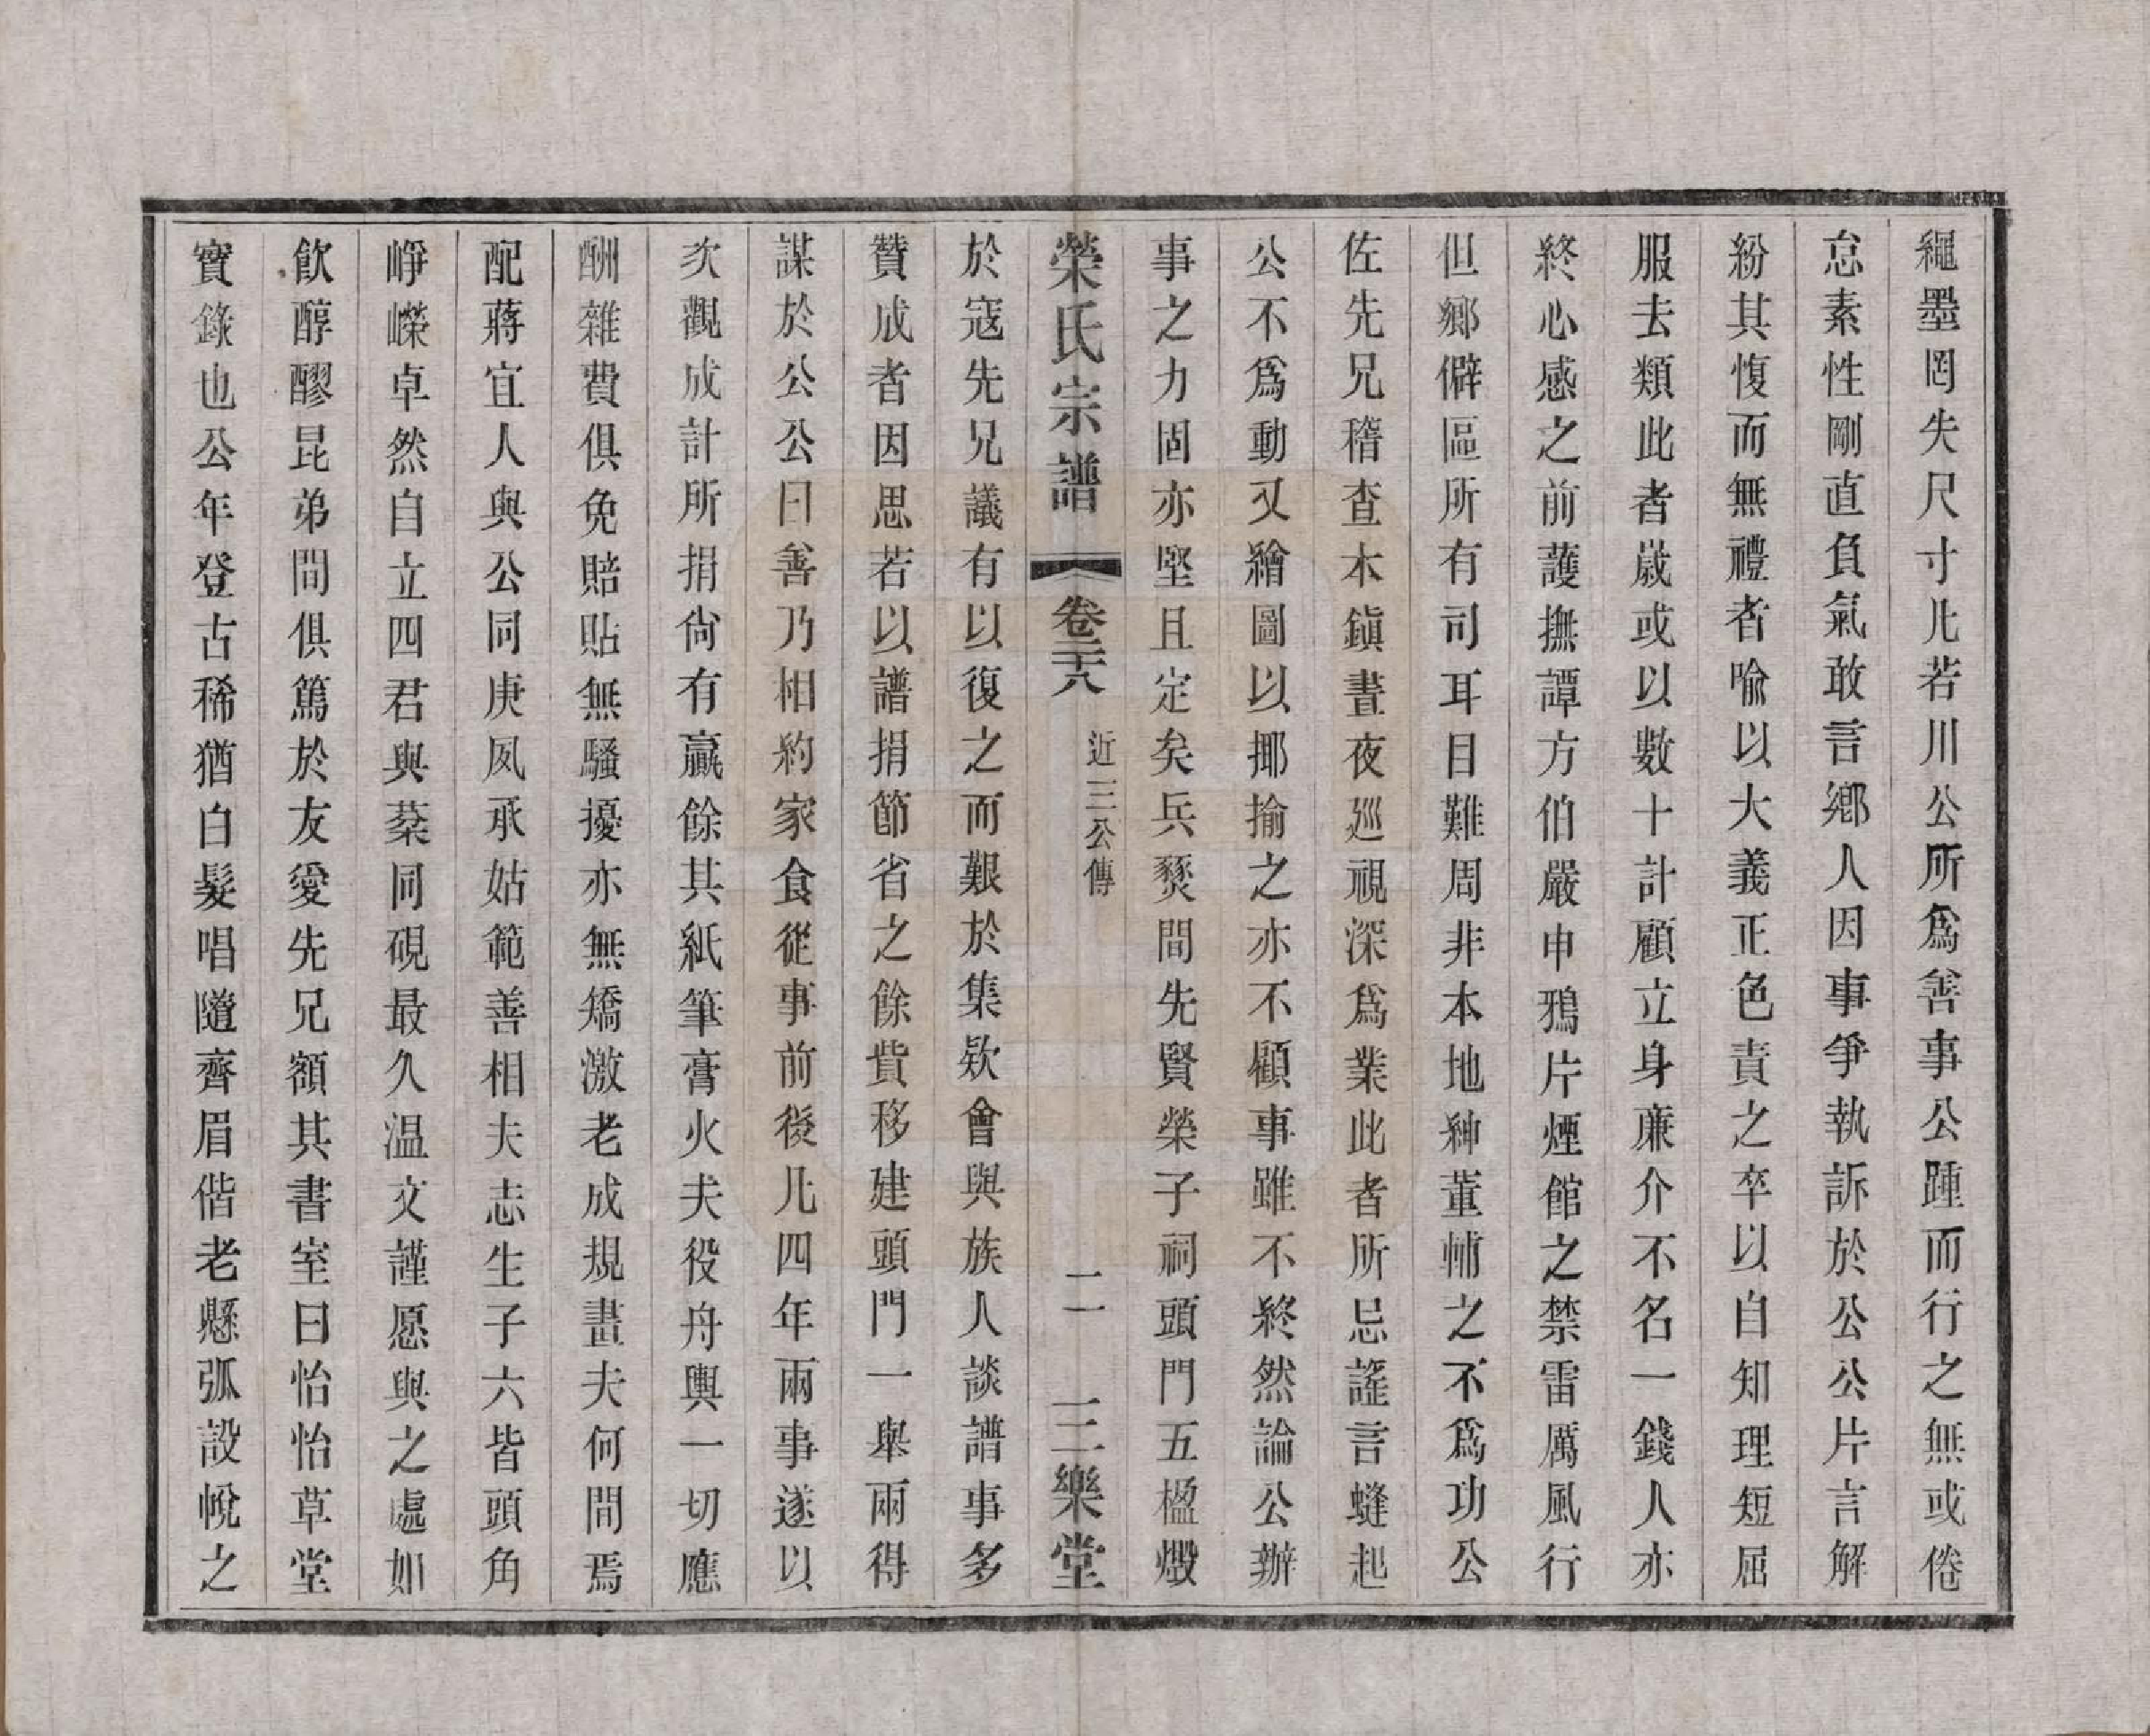 繩墨罔失尺寸凡若川公所爲善事公踵而行之無或倦
怠素性剛直負氣敢言鄉人因事爭執訴於公公片言解
紛其愎而無禮者喻以大義正色責之卒以自知理短屈
服去類此者嵗或以數十計顧立身廉介不名一錢人亦
終心感之前護撫譚方伯嚴申鴉片煙館之禁雷厲風行
但鄉僻區所有司耳目難周非本地紳董輔之不爲功公
佐先兄稽查木鎮晝夜廵視深爲業此者所忌謠言蠭起
公不爲動又繪圖以揶揄之亦不顧事雖不終然論公辦
事之力固亦堅且定矣兵燹間先賢榮子祠頭門五楹燬
榮氏宗譜 卷二十八 近三公傳 二 三樂堂
於寇先兄議有以復之而艱於集欵會與族人談譜事多
贊成者因思若以譜捐節省之餘貲移建頭門一舉兩得
謀於公公曰善乃相約家食從事前後凡四年兩事遂以
次觀成計所捐尙有贏餘其紙筆膏火夫役舟輿一切應
酬雜費俱免賠貼無騷擾亦無矯激老成規畫夫何間焉
配蔣宜人與公同庚夙承姑範善相夫志生子六皆頭角
崢嶸卓然自立四君與棻同硯最久温文謹愿與之處如
飲醇醪昆弟間俱篤於友愛先兄額其書室曰怡怡草堂
實錄也公年登古稀猶白髮唱隨齊眉偕老懸弧設帨之